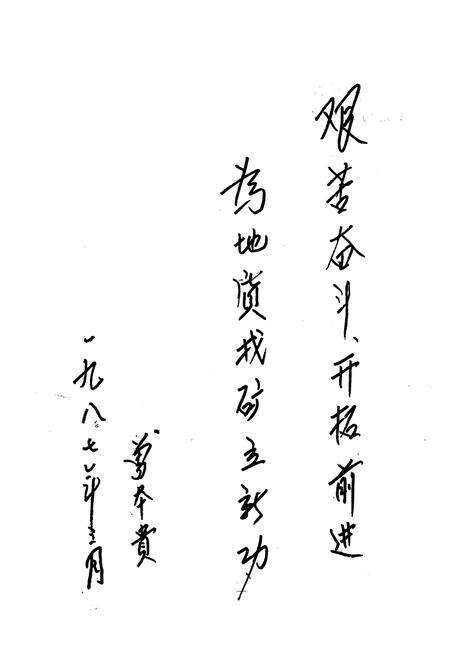 艰苦奋斗、开拓前进
为地質找矿立新功
本貴
一九八七年三月